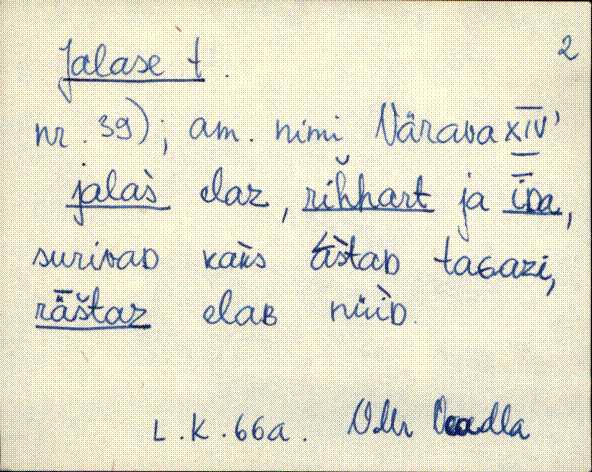 Jalase t. 2
nr. 39); am. nimi Värava XIV'
jalàs elaz, rihhart ja īDa,
surivaD kaks āstaD taGazi,
rāštaz elaB nüìD.
L.K. 66a. V.Mr